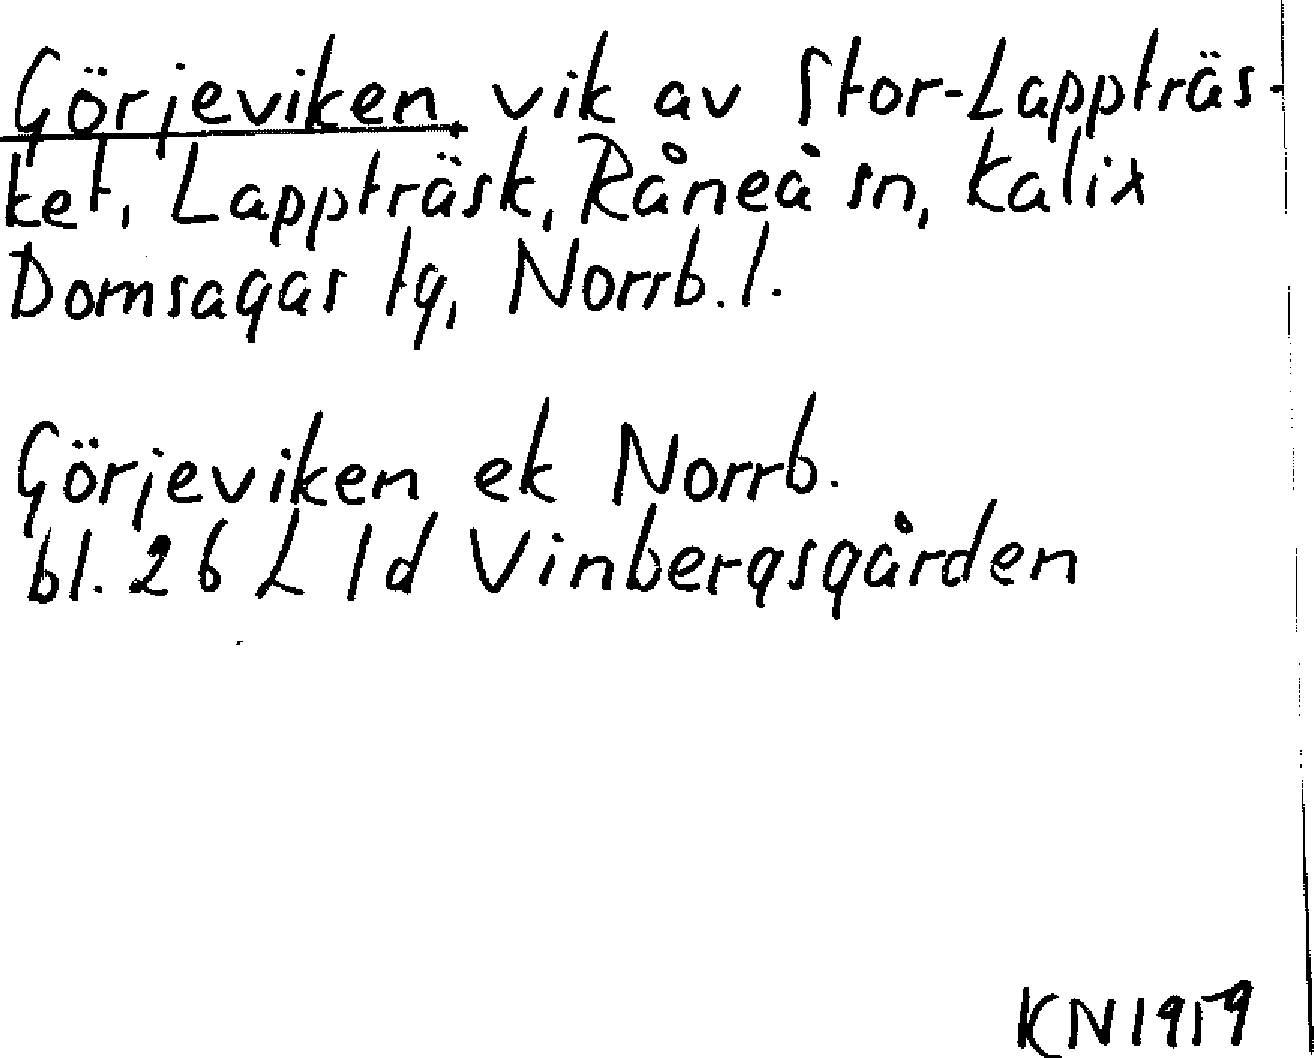 Görjeviken, vik av Stor-Lappträs-
ket, Lappträsk, Råneå sn, Kalix
Domsagas tg, Norrb. l.
Görjeviken ek Norrb.
bl. 26 L 1d Vinbergsgården
KN 1959